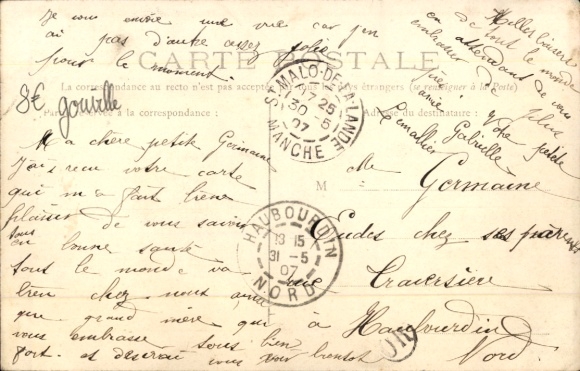 Je vous envoie une vue car j'en
ai pas d'autre assez jolie
pour le moment.
CARTE POSTALE
La correspondance au recto n'est pas acceptée par tous les pays étrangers (se renseigner à la Poste)
Partie réservée à la correspondance :
Adresse du destinataire :
8€ gouville
Ma chère petite Germaine
J'ai reçu votre carte
qui m'a fait bien
plaisir de vous savoir
tous
en bonne santé
tout le monde va
bien chez nous ainsi
que grand mère qui
vous embrasse tous bien
fort et désirait vous voir bientôt
Milles baisers
de tout le monde
en attendant de vous
embrasser de
Votre petite
amie Gabrielle
Lemallier
ST MALO-DE-LA-LANDE
17 25
30 -5
07
MANCHE
M
elle
Germaine
Eudes chez ses parents
rue Traversière
à Haubourdin
Nord.
HAUBOURDIN
13 15
31 -5
07
NORD